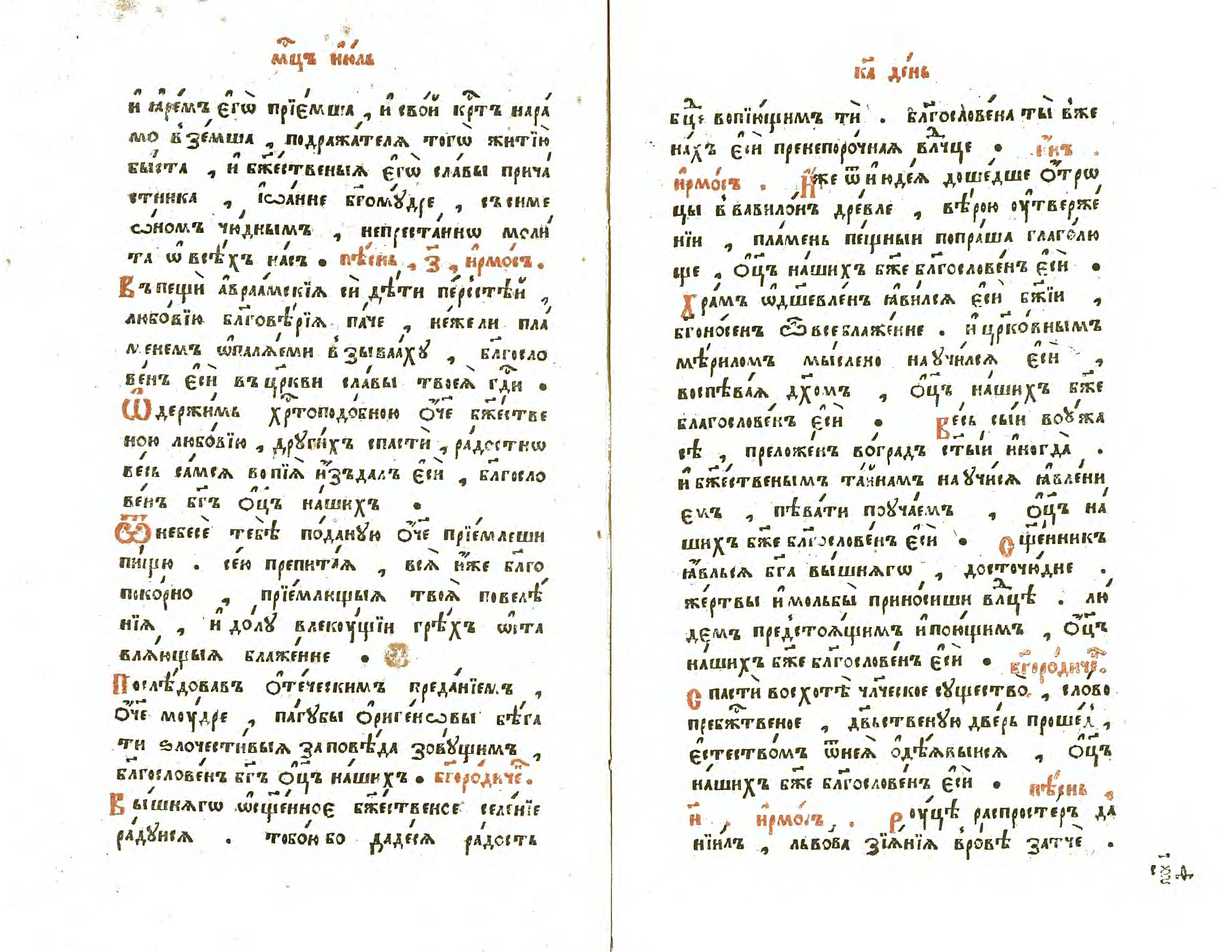 мⷭ҇цъ і҆ю́ль
и҆ ꙗ҆ре́мъ є҆гѡ̀ прїе́мша , и҆ сво́й крⷭ҇тъ нара́
мо в̾зе́мша , подража́телѧ тогѡ̀ житїю̀
бы́ста , и҆ бж҃е́ственыѧ є҆гѡ̀ сла́вы прича́
стника , і҆ѡа́нне бг҃ому́дре , съ симе
ѡ́номъ чю́днымъ , непреста́ннѡ моли́
та ѡ҆ всѣ́хъ на́съ • пѣ́снь , з҃ , і҆рмо́съ .
Въ пещѝ а҆враа́мскїѧ сѝ дѣ́ти пе́рсстѣй ,
любо́вїю бл҃говѣ́рїѧ па́че , не́жели пла́
менемъ ѡ҆палѧ́еми в̾зыва́ахꙋ , бл҃госло
ве́нъ є҆сѝ въ цр҃кви сла́вы твоеѧ̀ гдⷭ҇и •
Ѡ҆держи́мь хрⷭ҇топодо́бною ѻ҆́ч҃е бж҃е́стве
ною любо́вїю , други́хъ спастѝ , ра́достнѡ
ве́сь са́мсѧ вопїѧ̀ и҆з̾да́лъ є҆сѝ , бл҃госло
ве́нъ бг҃ъ ѻ҆ц҃ъ на́шихъ •
Ѿ небесѐ тебѣ̀ по́даную ѻ҆́ч҃е прїе́млеши
пи́щю . се́ю препита́ѧ , всѧ̀ и҆́же бл҃го
поко́рно , прїе́млющыѧ твоѧ̀ повелѣ́
нїѧ , и҆ до́лу влекоу́щїи грѣ́хъ ѡ҆ста
влѧ́ющыѧ блаже́нне •
Послѣ́довавъ ѻ҆те́ческимъ преда́нїемъ ,
ѻ҆́ч҃е моу́дре , па́губы ѻ҆риге́нѡвы бѣ́га
ти ѕлочести́выѧ заповѣ́да зову́щимъ ,
бл҃гослове́нъ бг҃ъ ѻ҆ц҃ъ на́шихъ • бг҃оро́диченъ .
Вы́шнѧгѡ ѡ҆сщ҃е́нное бж҃е́ственое селе́нїе
ра́дуисѧ . тобо́ю бо даде́сѧ ра́дость
к҃а де́нь
бцⷣе вопїю́щимъ тѝ . бл҃гослове́на ты̀ в̾же
на́хъ є҆сѝ пренепоро́чная влⷣчце • и҆́нъ .
і҆рмо́съ . И҆́же ѿ и҆юде́ѧ доше́дше ѻ҆́тро
цы в̾ вавило́нъ дре́вле , вѣ́рою оу҆тверже́
нїи , пла́мень пе́щныи попра́ша глаго́лю
ще , ѻ҆ц҃ъ на́шихъ бж҃е бл҃гослове́нъ є҆сѝ •
Хра́мъ ѡ҆дшевле́нъ ꙗ҆ви́лсѧ є҆сѝ бж҃їи ,
бг҃оно́сенъ ѻ҆́ч҃е всеблаже́нне . и҆ цр҃ко́внымъ
мѣ́риломъ мы́слено научи́лсѧ є҆сѝ ,
воспѣва́ѧ дх҃омъ , ѻ҆ц҃ъ на́шихъ бж҃е
благослове́нъ є҆сѝ • Ве́сь сы́и во оу҆́жа
сѣ , преложе́нъ во́градъ ст҃ы́и и҆ногда̀ .
и҆ бж҃е́ственымъ та́йнамъ научи́сѧ ꙗ҆вле́ни
емъ , пѣва́ти поуча́емъ , ѻ҆ц҃ъ на́
шихъ бж҃е бл҃гослове́нъ є҆сѝ • Сщ҃е́нникъ
ꙗ҆́вльсѧ бг҃а вы́шнѧгѡ , досточю́дне .
же́ртвы и҆ мольбы̀ прино́сиши влⷣцѣ . лю́
демъ предстоѧ́щимъ и҆ пою́щимъ , ѻ҆ц҃ъ
на́шихъ бж҃е бл҃гослове́нъ є҆сѝ • бг҃оро́диченъ .
Спастѝ восхотѣ̀ чл҃ческое существо̀ , сло́во
пребж҃е́ственое , двь́ственую две́рь проше́д ,
є҆стество́мъ ѿ неѧ̀ ѻ҆дѣ́ѧвыисѧ , ѻ҆ц҃ъ
на́шихъ бж҃е бл҃гослове́нъ є҆сѝ • пѣ́снь ,
и҃ , і҆рмо́съ . Роу́цѣ распросте́ръ да
нїи́лъ , льво́ва зїѧ́нїѧ в̾ро́вѣ затчѐ .